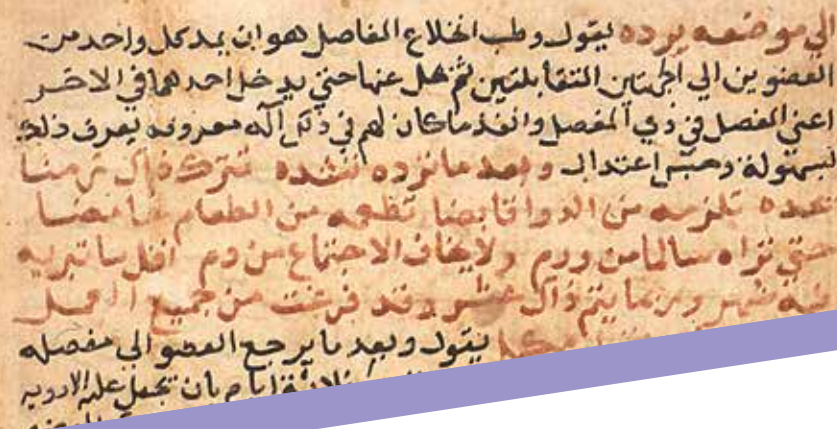 الي موضعه يرده يقول وطب انخلاع المفاصل هو ان يمد كل واحد من
العضوين الي الجهتين المتقابلتين ثم يدخل احدهما في الاخر
اعني المفصل في ذي المفصل وانفذ ما كان لهم في ذلك اله معروفه يعرف ذلك
بسهولة وحسن اعتدال وبعد ما ترده تشده تتركه
عده تلزمه من الدوا قابضا تطعمه من الطعام حامضا
حتي تراه سالما من ورم ولا يخاف الاجتماع من دم اقل ما تبريه
فيه شهر وربما يتم ذاك عشر وقد فرغت من جميع العمل
يقول وبعد ما يرجع العضو الي مفصله
ثلاثة ايام بان تجعل عليه الادويه